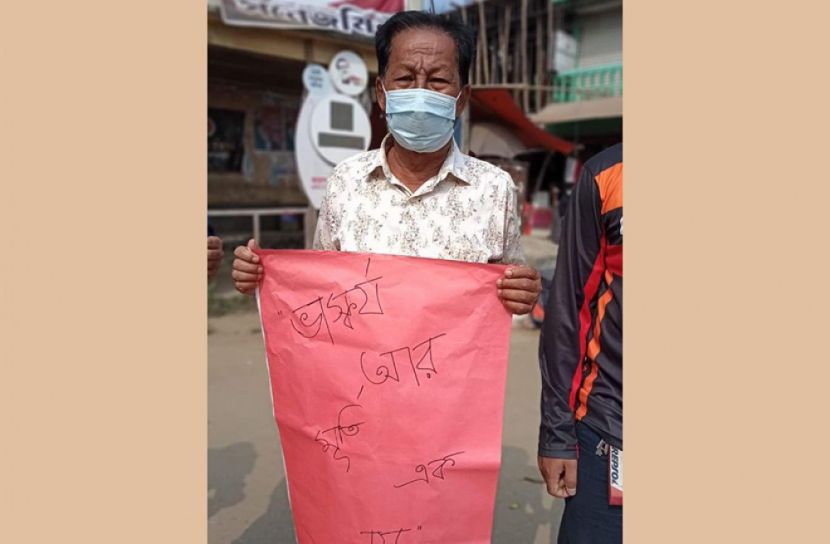 "ভাস্কর্য
আর
মূর্তি
এক
নয়"